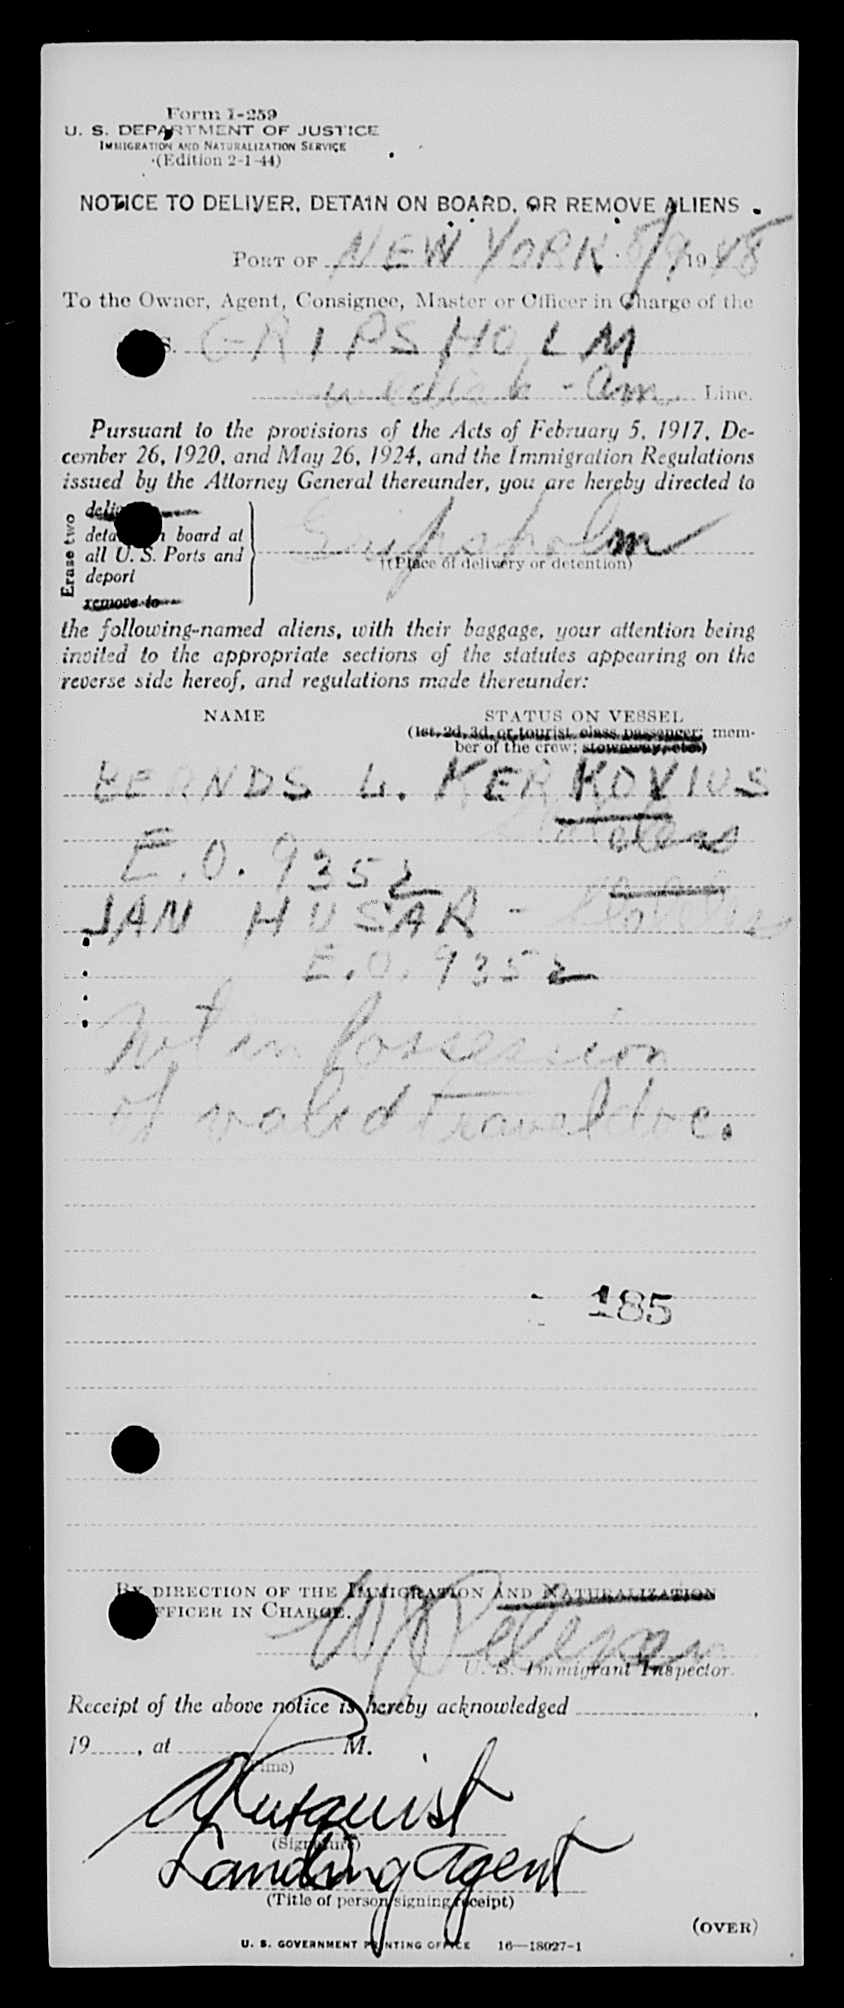 Form I-259
U. S. DEPARTMENT OF JUSTICE
IMMIGRATION AND NATURALIZATION SERVICE
(Edition 2-1-44)
NOTICE TO DELIVER, DETAIN ON BOARD, OR REMOVE ALIENS
PORT OF NEW YORK 8/9 1948
To the Owner, Agent, Consignee, Master or Officer in Charge of the
S. GRIPSHOLM
Am Line.
Pursuant to the provisions of the Acts of February 5, 1917, De-
cember 26, 1920, and May 26, 1924, and the Immigration Regulations
issued by the Attorney General thereunder, you are hereby directed to
Erase two
board at
all U. S. Ports and
deport
remove to
Gripsholm
(Place of delivery or detention)
the following-named aliens, with their baggage, your attention being
invited to the appropriate sections of the statutes appearing on the
reverse side hereof, and regulations made thereunder:
NAME STATUS ON VESSEL
(1st, 2d, 3d, or tourist class passenger; mem-
ber of the crew; stowaway, etc.)
BERNDS L. KERKOVIUS
E.O. 9352
JAN HUSAR -
E.O. 9352
Not in possession
of valid travel doc.
185
BY DIRECTION OF THE IMMIGRATION AND NATURALIZATION
OFFICER IN CHARGE.
U. S. Immigrant Inspector.
Receipt of the above notice is hereby acknowledged
19, at M.
(Time)
(Signature)
Landing Agent
(Title of person signing receipt)
(OVER)
U. S. GOVERNMENT PRINTING OFFICE 16—18027-1